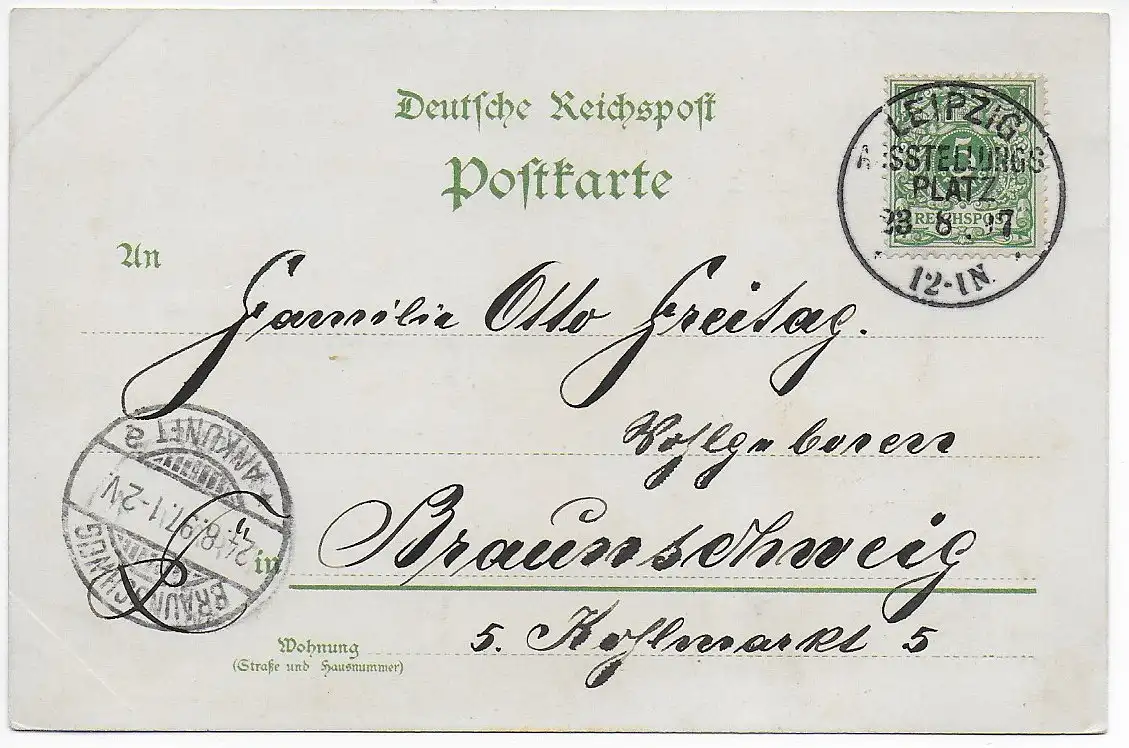 Deutsche Reichspost
Postkarte
LEIPZIG
AUSSTELLUNGS
PLATZ
23 8 . 97
12-1N.
5
REICHSPOST
An
Familie Otto Freitag.
Wohlgeboren
ANKUNFT
24.8.97. 1-2V.
BRAUNSCHWEIG
in Braunschweig
5. Kohlmarkt 5
Wohnung
(Straße und Hausnummer)